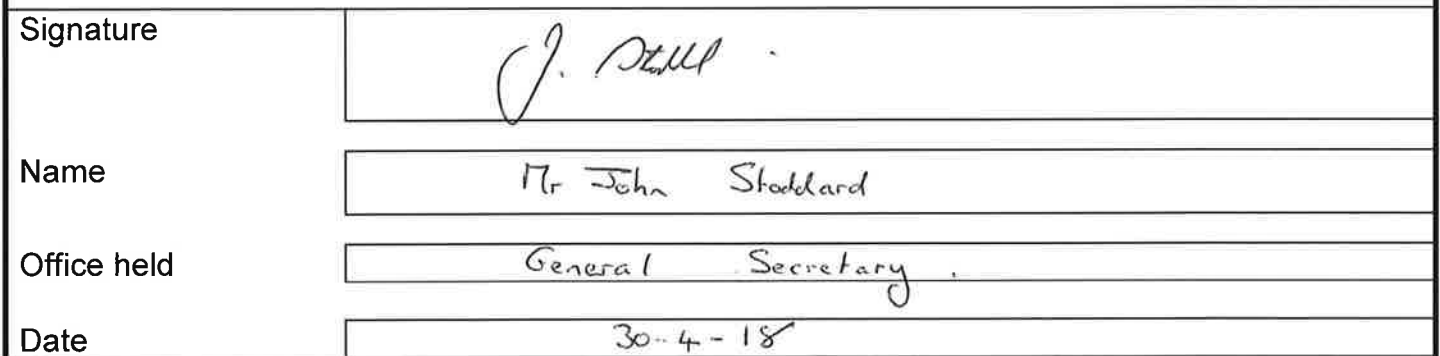 Signature
J.
Name Mr John Stoddard
Office held General Secretary.
Date 30-4-18